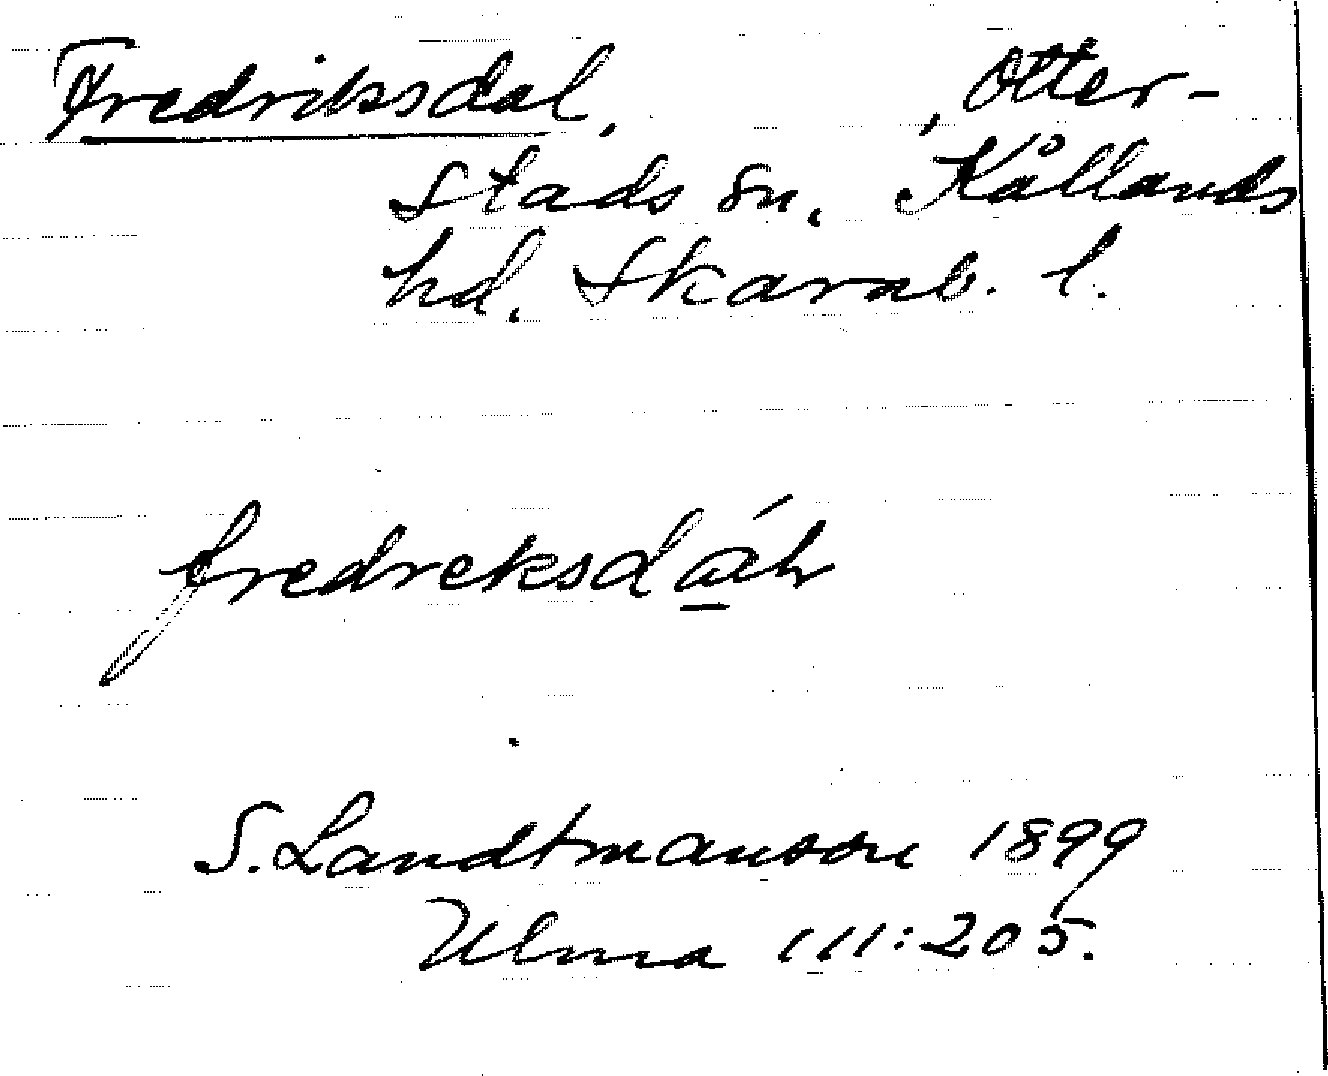 Fredriksdal, , Otter-
stads sn. Kållands
hd. Skarab. l.
fredreksdáh
S. Landtmanson 1899
Ulma 111:205.